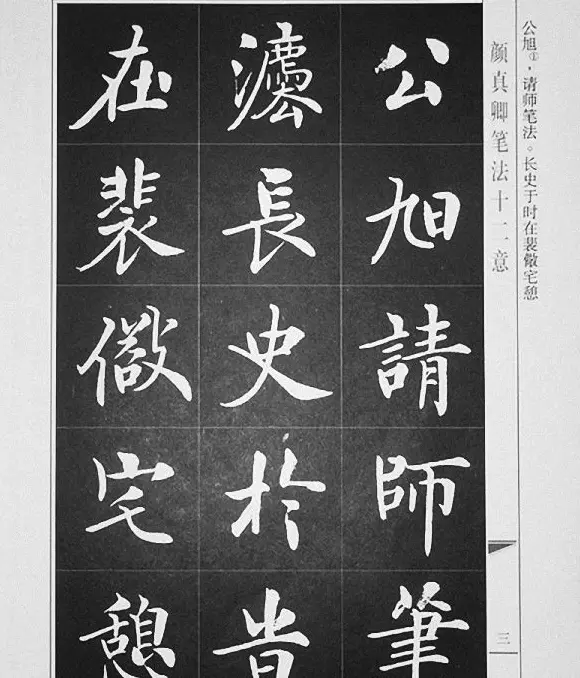 公旭①，请师笔法。长史于时在裴儆宅憩
颜真卿笔法十二意
三
公旭請師筆
灋長史於旹
在裴儆宅憩